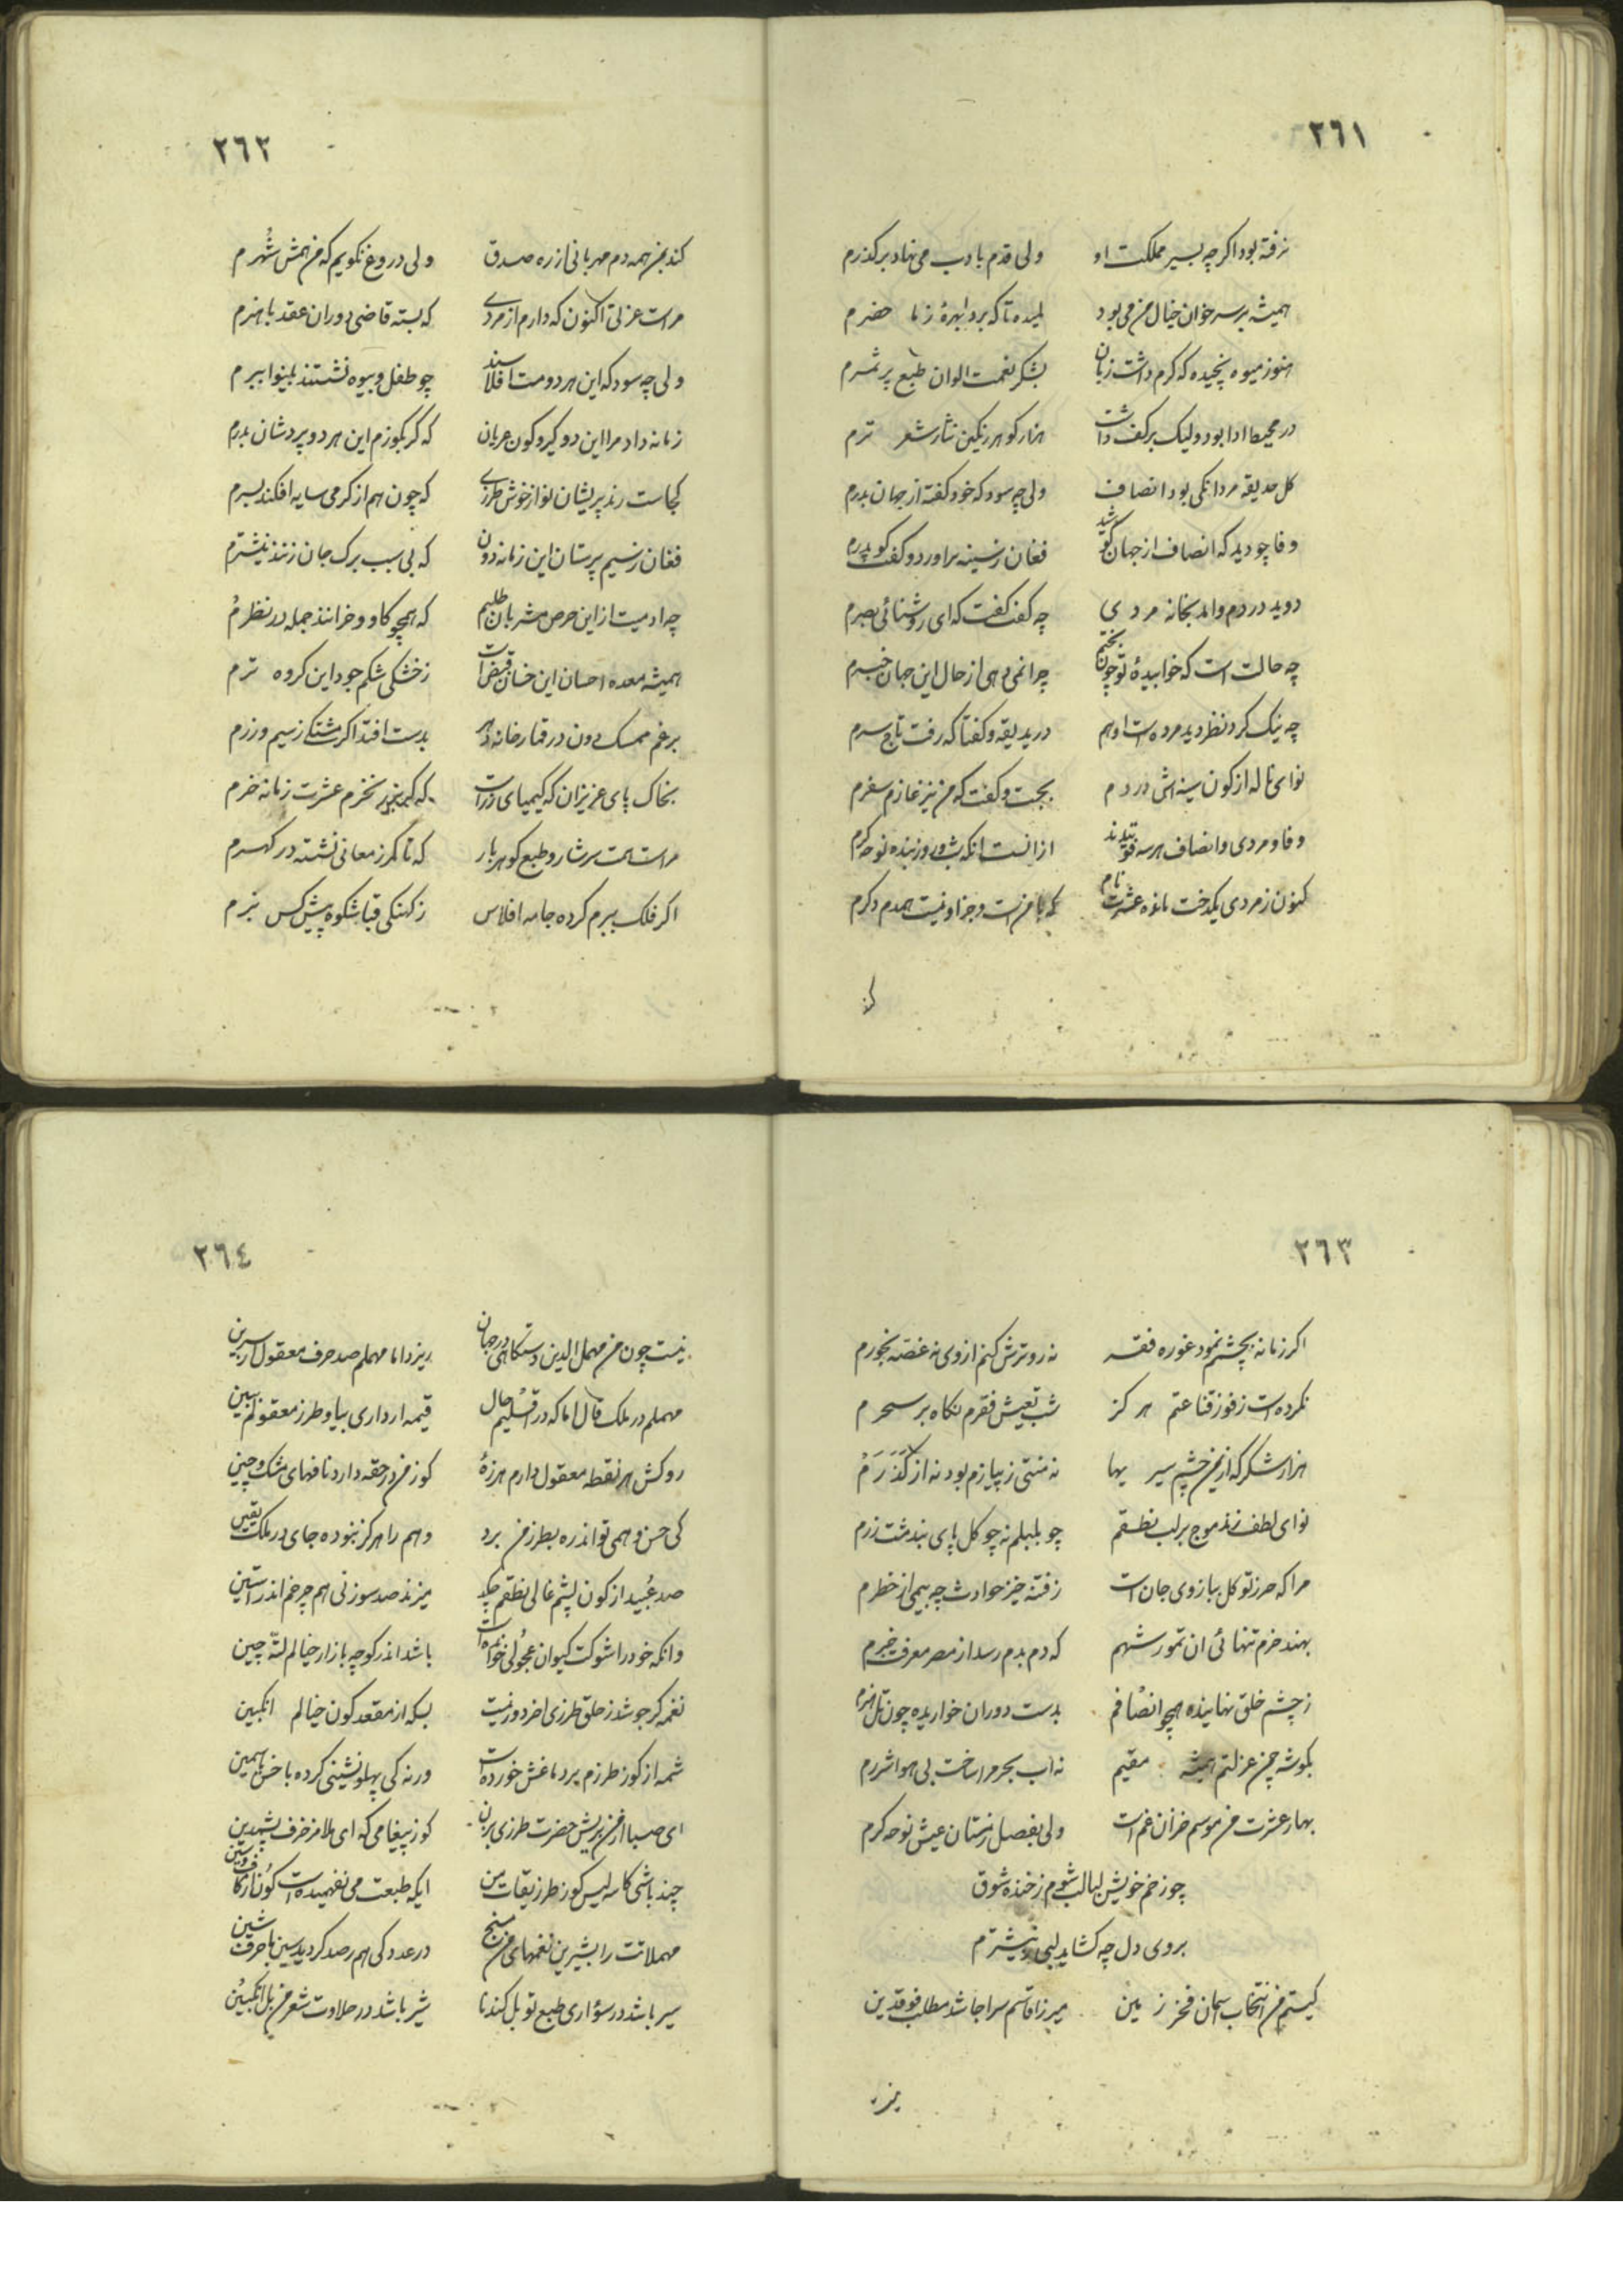 ٢٦١
نرفته بود اکرچه بسیر مملکت او ولی قدم بادب می نهاد برکذرم
همیشه بر سر خوان خیال من می بود
هنوز میوه نچیده که کرم داشت زبان بشکر نعمت الوان طبع پر ثمرم
در محیط ادا بود ولیک برکف داشت هزار کوهر رنکین نثار شعر ترم
کل حدیقه مردانکی بود انصاف ولی چه سود که خود کفته از جهان بدرم
وفا چو دید که انصاف از جهان کم شد فغان ز سینه براورد و کفت کو پدرم
دوید در دم و امد بخانه مردی چه کفت کفت که ای روشنائی بصرم
چه حالت است که خوابیدهٔ تو چون بختم چرا نمی دهی از حال این جهان خبرم
چه نیک کرد نظر دید مرده است او هم درید یقه و کفتا که رفت تاج سرم
نوای ناله از کون سینه اش در دم بجست و کفت که من نیز عازم سفرم
وفا و مردی و انصاف هر سه فوتیدند از انست انکه شب و روز بنده نوحه کرم
کنون ز مردی یکدخت مانده عشرت نام که با منست و جز او نیست همدم دکرم
کند
٢٦٢
کند بمن همه دم مهربانی از ره صدق ولی دروغ نکویم که من همش شهرم
مراست عزلتی اکنون که دارم از مردی که بسته قاضی دوران عقد با هنرم
ولی چه سود که این هر دو مست افلاسند چو طفل و بیوه نشستند بینوا ببرم
زمانه داد مرا این دو کیر و کون عریان که کر بکوزم این هر دو پرد شان بدرم
کجاست رند پریشان نواز خوش طرزی که چون هم از کرمی سایه افکند بسرم
فغان ز سیم پرستان این زمانه دون که بی سبب برک جان زنند نیشترم
چه ادمیت از این حرص مشربان طلبم که همچو کاو و خرانند جمله در نظرم
همیشه معده احسان این خسان قبض است ز خشکی شکم جود این کروه ترم
برغم ممسک دون در قمارخانه دهر بدست افتد اکر مشتکی ز سیم و زرم
بخاک پای عزیزان که کیمیای زر است که نخرم عشرت زمانه خرم
مراست همت سرشار و طبع کوهر بار که تا کمر ز معانی نشسته در کهرم
اکر فلک ببرم کرده جامه افلاس ز کهنکی قبا شکوه پیش کس نبرم
٢٦٣
اکر زمانه بچشمم نمود غوره فقر نه رو ترش کنم از وی نه غصه بخورم
نکرده است ز فوز قناعتم هرکز شب تعیش فقرم نکاه بر سحرم
هزار شکر که از یمن چشم سیریها نه منتی ز پیازم بود نه از کذرم
نوای لطف زند موج بر لب نطقم چو بلبلم نه چو کل پای بند مشت زرم
مرا که حرز توکل ببازوی جان است ز فتنه خیز حوادث چه بیمی از خطرم
بهند خرم تنهائی ان تمور شهم که دم بدم رسد از مصر معرفت خبرم
ز چشم خلق نهانیده همچو انصافم بدست دوران خواریده چون هنرم
بکوشه چمن عزلتم همیشه مقیم نه اب بحر مرا ساخت بی هوا شررم
بهار عشرت من موسم خزان غم است ولی بفصل زمستان عیش نوحه کرم
چو زخم خویش لبالب شوم ز خنده شوق
بروی دل چه کشاید لبی ز نیشترم
کیستم من انتخاب اسمان فخر زمین میرزا قاسم سراجا شد مطاف فرقدین
نیز
٢٦٤
نیست چون من مهمل الدین دستکاهی در جهان ریزد اما مهملم صد حرف معقول از سرین
مهملم در ملک قال اما که در اقلیم حال قیمه ار داری بیا و طرز معقولم ببین
روکش هر نقطه معقول دارم هرزهٔ کوز من در حقه دارد نافهای مشک چین
کی حس وهمی تواند ره بطرز من برد وهم را هرکز نبوده جای در ملک یقین
صد عبید از کون پشم عالی نطقم چکید میزند صد سوزنی هم چرخم اندر استین
وانکه خود را شوکت کیوان عجولی خوانده است باشد اندر کوچه بازار خیالم لته چین
نغمه کر جوشد ز حلق طرزی افرد دور نیست بسکه از مقعد کون خیالم انکبین
شمه از کوز طرزم بر دماغش خورده است ورنه کی پهلو نشینی کرده با خس یاسمین
ای صبا از من بریش حضرت طرزی بران کوز پیغامی که ای ملا مزخرف بشهدین
چند باشی کاسه لیس کوز طرزیقات من ایکه طبعت می نفهمیده است کون از کاف و سین
مهملاتت را بشیرین نغمهای من مسنج در عدد کی هم رصد کردید سین با حرف شین
سیر باشد در سؤاری طبع تو بل کندنا شیر باشد در حلاوت شعر من بل انکبین